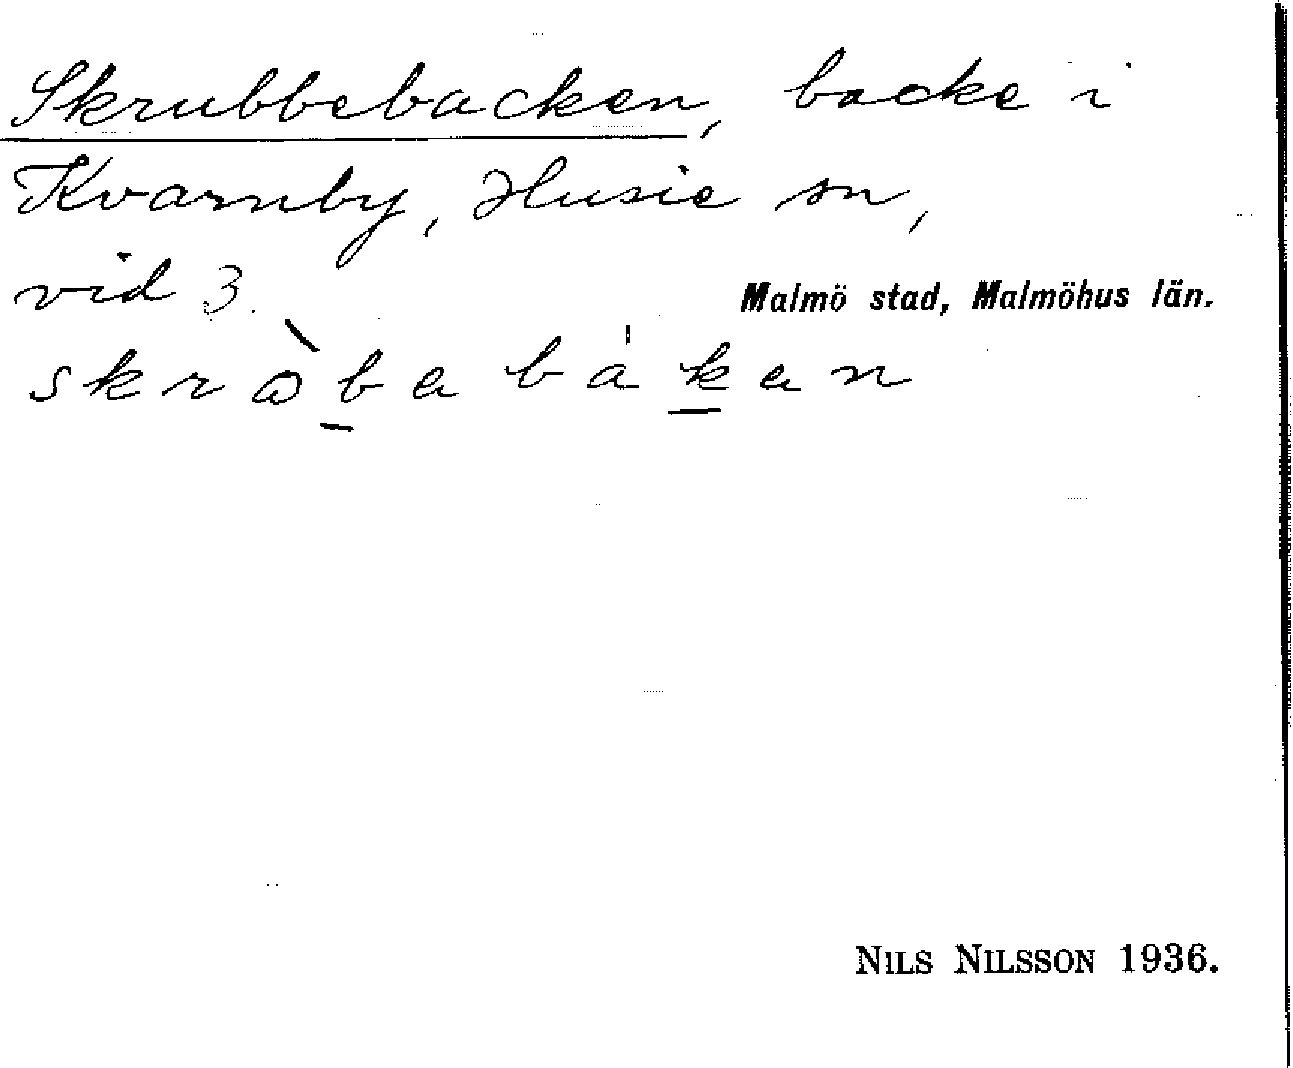 Skrubbebacken, backe i
Kvarnby, Husie sn,
vid 3.
Malmö stad, Malmöhus län.
skrɷ̀b̲ebák̲en
NILS NILSSON 1936.